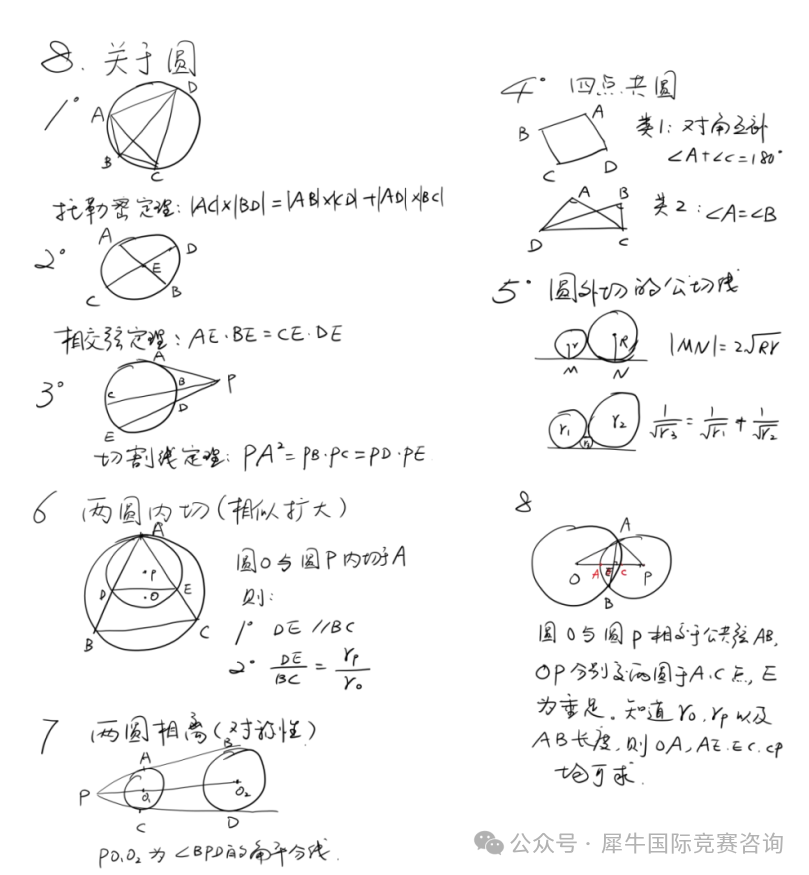 8. 关于圆
1°
A
D
B
C
托勒密定理: |AC|×|BD|=|AB|×|CD|+|AD|×|BC|
2°
A
D
E
C
B
相交弦定理: AE·BE=CE·DE
3°
A
B
P
C
D
E
切割线定理: PA²=PB·PC=PD·PE
4° 四点共圆
A
B
C
D
类1: 对角互补
∠A+∠C=180°
A
B
D
C
类2: ∠A=∠B
5° 圆外切的公切线
r
R
M
N
|MN|=2√Rr
r₁
r₂
r₃
1/√r₃=1/√r₁+1/√r₂
6 两圆内切(相似扩大)
A
P
D
O
E
B
C
圆O与圆P内切于A
则:
1° DE//BC
2° DE/BC=rp/ro
7 两圆相离(对称性)
B
A
P
O₁
O₂
C
D
PO₁O₂为∠BPD的角平分线.
8
A
O
A
E
C
P
B
圆O与圆P相交于公共弦AB,
OP分别交两圆于A.C点, E
为垂足。知道ro, rp以及
AB长度, 则OA, AE.EC.CP
均可求.
公众号·犀牛国际竞赛咨询